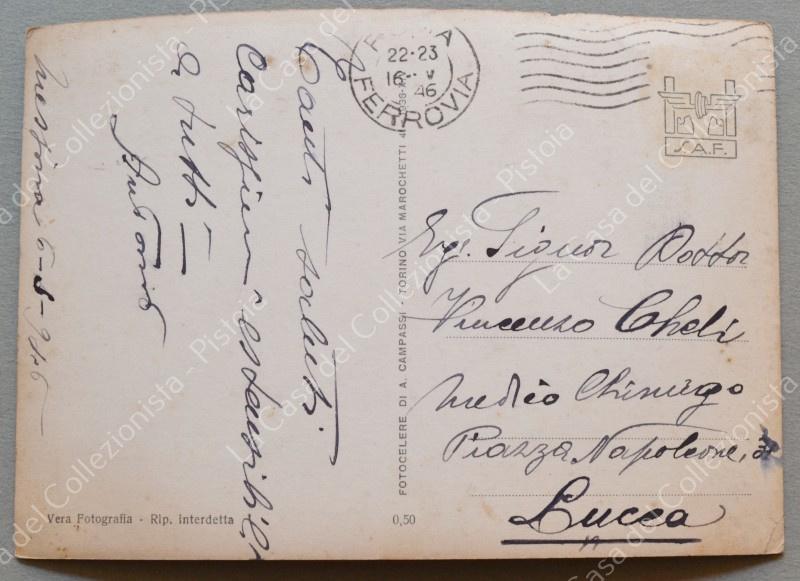 Messina 6-5-946
Tanti saluti
carissimi estensibili
a tutti
Antonio
22·23
16· V
46
FERROVIA
S.A.F.
Egr. Signor Dottor
Vincenzo Cheli
Medico Chirurgo
Piazza Napoleone,
Lucca
FOTOCELERE DI A. CAMPASSI - TORINO VIA MAROCHETTI
Vera Fotografia - Rip. interdetta
0,50
La Casa del Collezionista - Pistoia